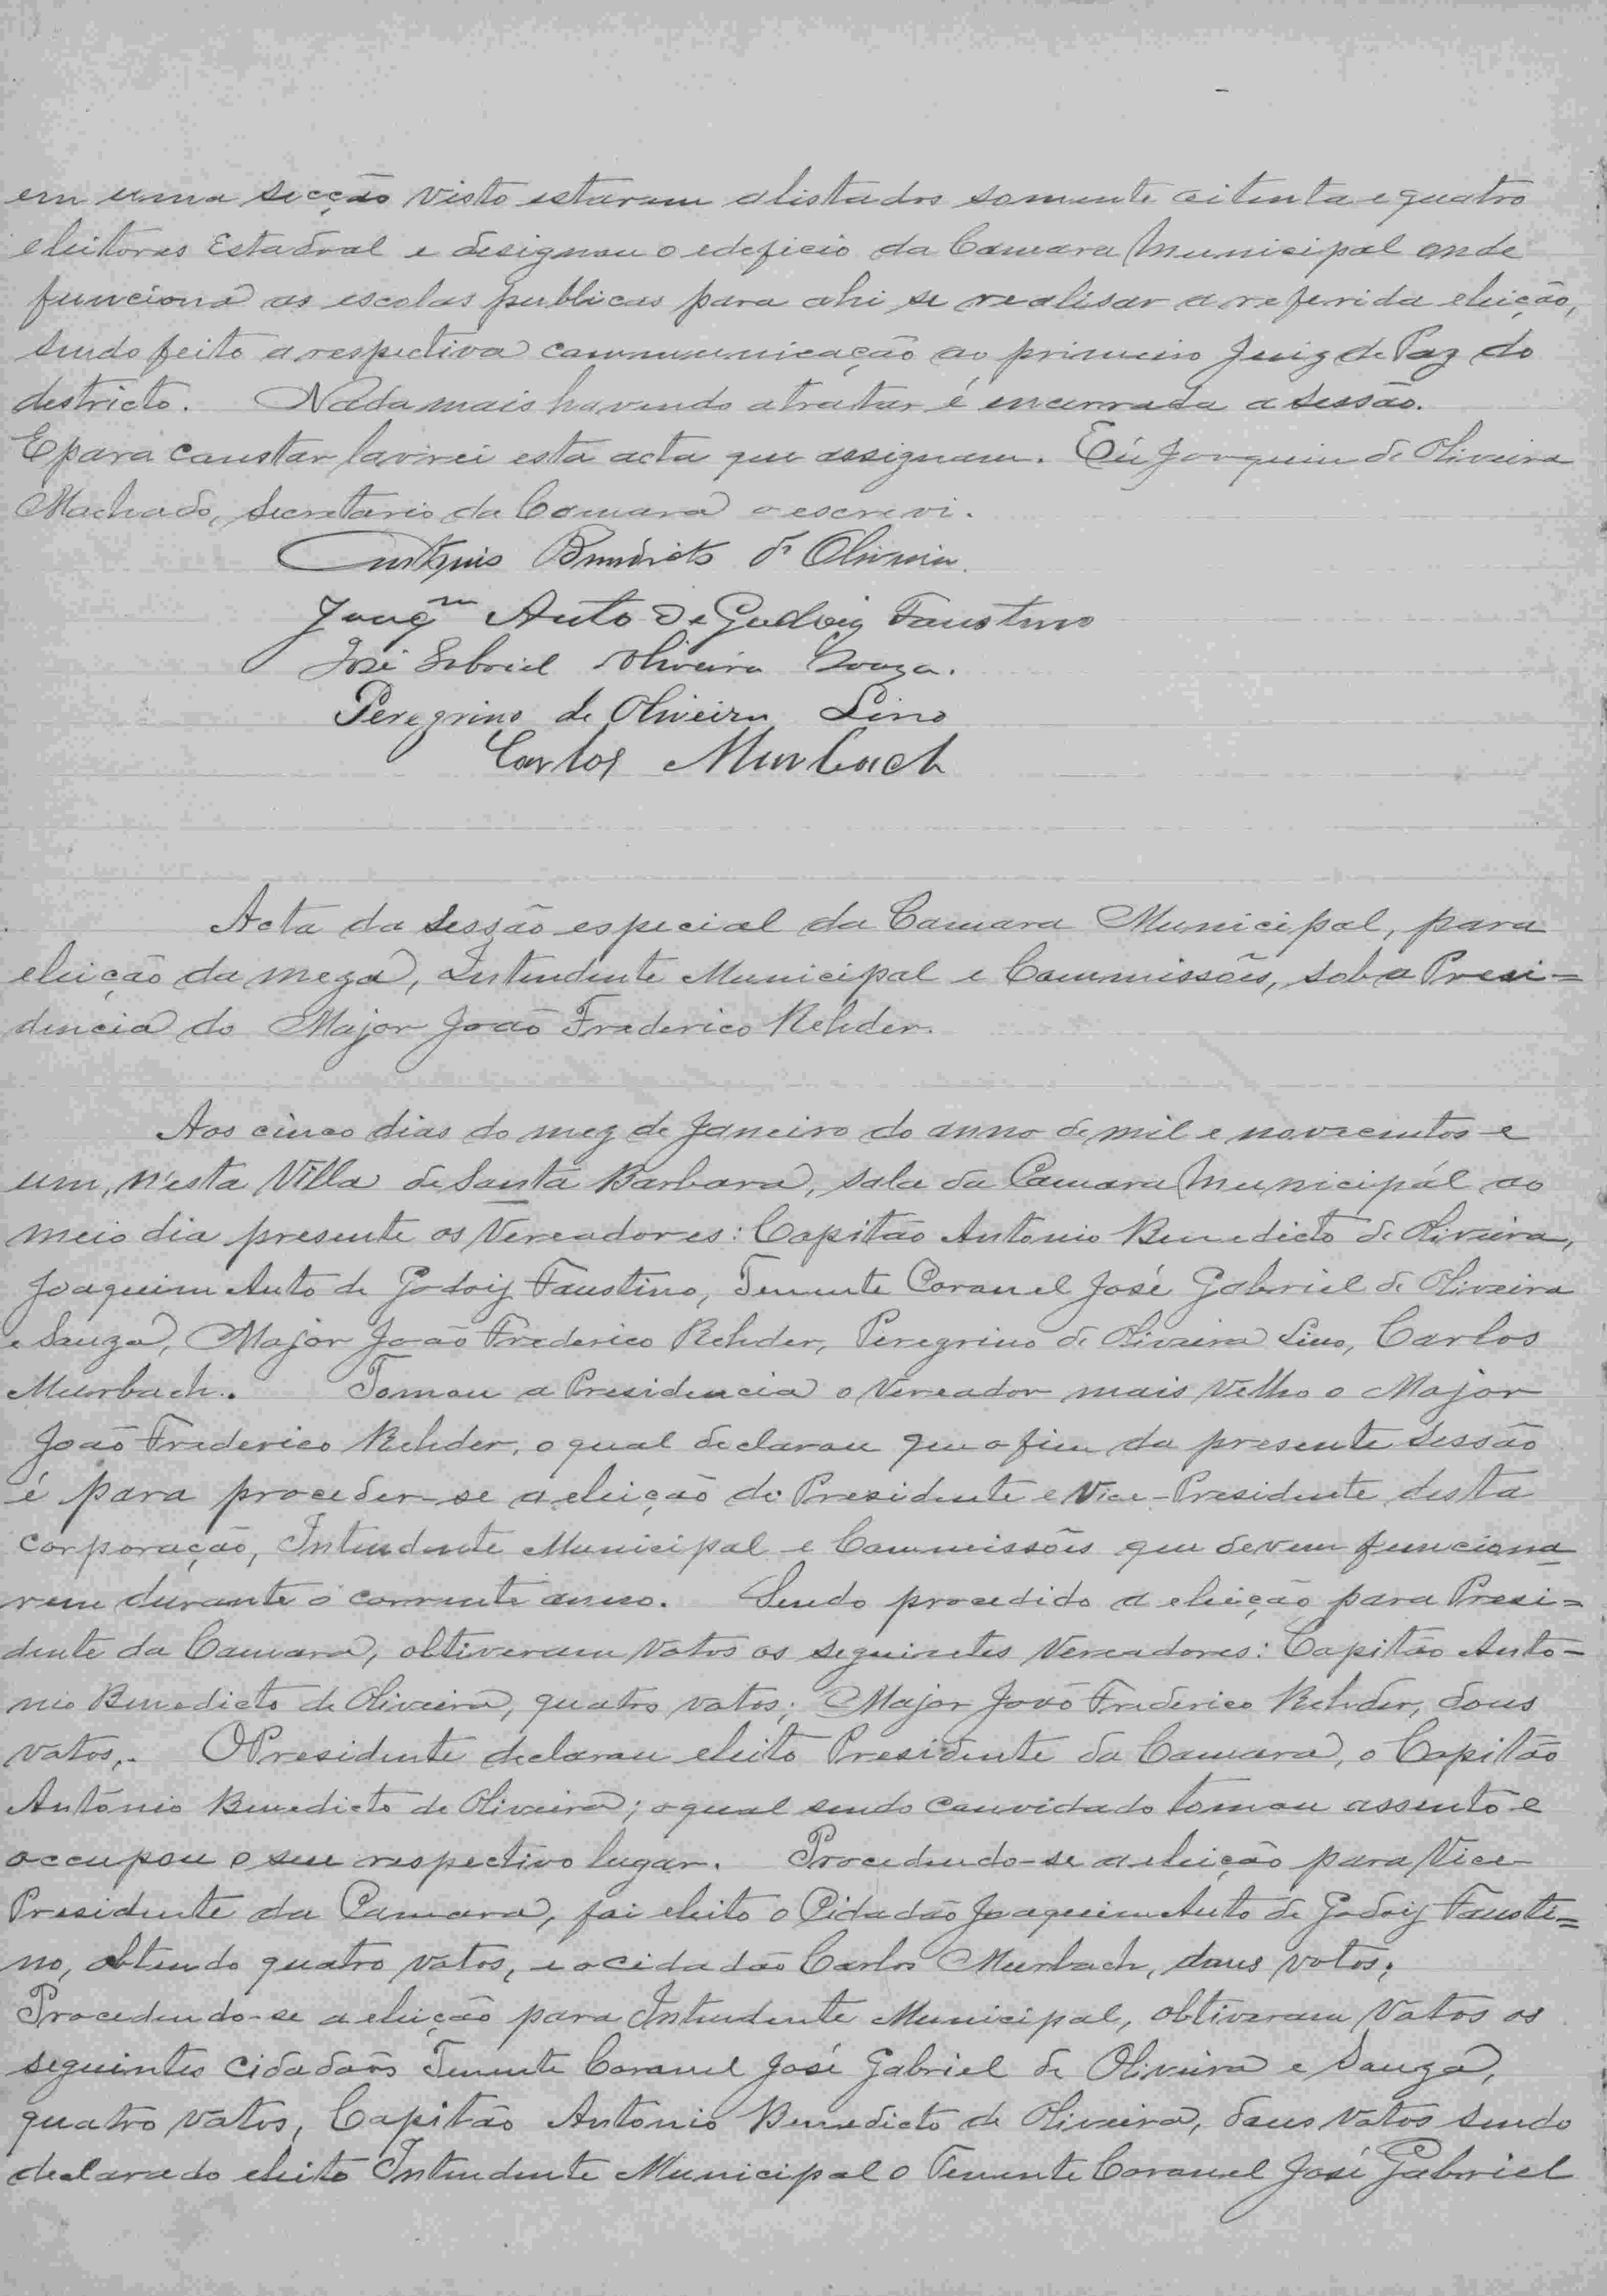 em uma secção visto estarem alistados somente oitenta e quatro
eleitores Estadoal e designou o edeficio da Camara Municipal onde
funciona as escolas publicas para ahi se realisar a referida eleição,
sendo feito a respectiva communicação ao primeiro Juiz de Paz do
destricto. Nada mais havendo a tratar é encerrada a sessão.
E para constar lavrei esta acta que assignam. Eu Joaquim de Oliveira
Machado, secretario da Camara o escrevi.
Antonio Benedicto de Oliveira
Joaqm Auto de Godoy Faustino
José Gabriel Oliveira Souza.
Peregrino de Oliveira Lino
Carlos Murbach
Acta da Sessão especial da Camara Municipal, para
eleição da meza, Intendente Municipal e Commissões, sob a Presi=
dencia do Major João Frederico Rehder.
Aos cinco dias do mez de Janeiro do anno de mil e novecentos e
um, n'esta Villa de Santa Barbara, sala da Camara Municipál ao
meio dia presente os Vereadores: Capitão Antonio Benedicto de Oliveira,
Joaquim Auto de Godoij Faustino, Tenente Coronel José Gabriel de Oliveira
e Souza, Major João Frederico Rehder, Peregrino de Oliveira Lino, Carlos
Murbach. Tomou a Presidencia o Vereador mais Velho o Major
João Frederico Rehder, o qual declarou que o fim da presente sessão
é para proceder-se a eleição de Presidente e Vice-Presidente desta
corporação, Intendente Municipal e Commissões que devem funciona
rem durante o corrente anno. Sendo procedido a eleição para Presi=
dente da Camara, obtiveram votos os seguintes Vereadores: Capitão Anto-
nio Benedicto de Oliveira, quatro votos; Major João Frederico Rehder, dous
votos. O Presidente declarou eleito Presidente da Camara, o Capitão
Antonio Benedicto de Oliveira; o qual sendo convidado tomou assento e
occupou o seu respectivo lugar. Procedendo-se a eleição para Vice-
Presidente da Camara, foi eleito o Cidadão Joaquim Auto de Godoij Fausti=
no, obtendo quatro votos, e o cidadão Carlos Murbach, dous votos;
Procedendo-se a eleição para Intendente Municipal, obtiveram Votos os
seguintes Cidadãos Tenente Coronel José Gabriel de Oliveira e Souza,
quatro votos, Capitão Antonio Benedicto de Oliveira, dous votos sendo
declarado eleito Intendente Municipal o Tenente Coronel José Gabriel